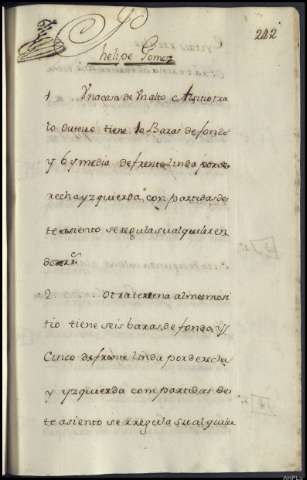 242
Phelipe Gomez
1 Una casa de un alto
tiene 10 Baras de fondo
y 6 y media de frente linda por de
recha y yzquierda con partidas de
te asiento se regula su alquiler en
2 Otra terrena al mesmo si
tio tiene seis baras de fondo y
Cinco de frente linda por derecha
y yzquierda con partidas de
te asiento se rregula su alquiler